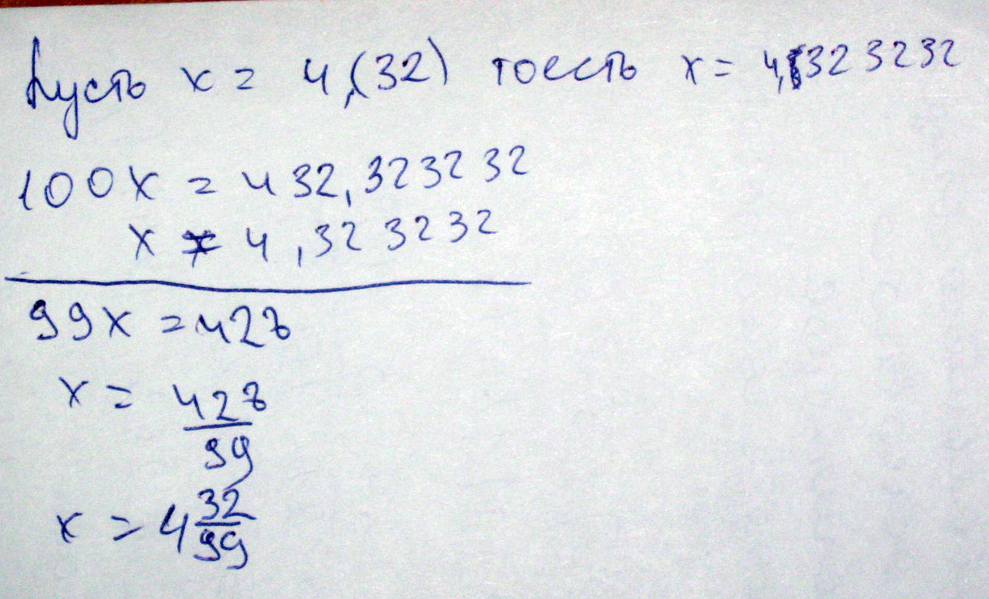 Пусть x = 4,(32) тоесть x = 4,323232
100x = 432,323232
x = 4,323232
99x = 428
x = 428/99
x = 4 32/99